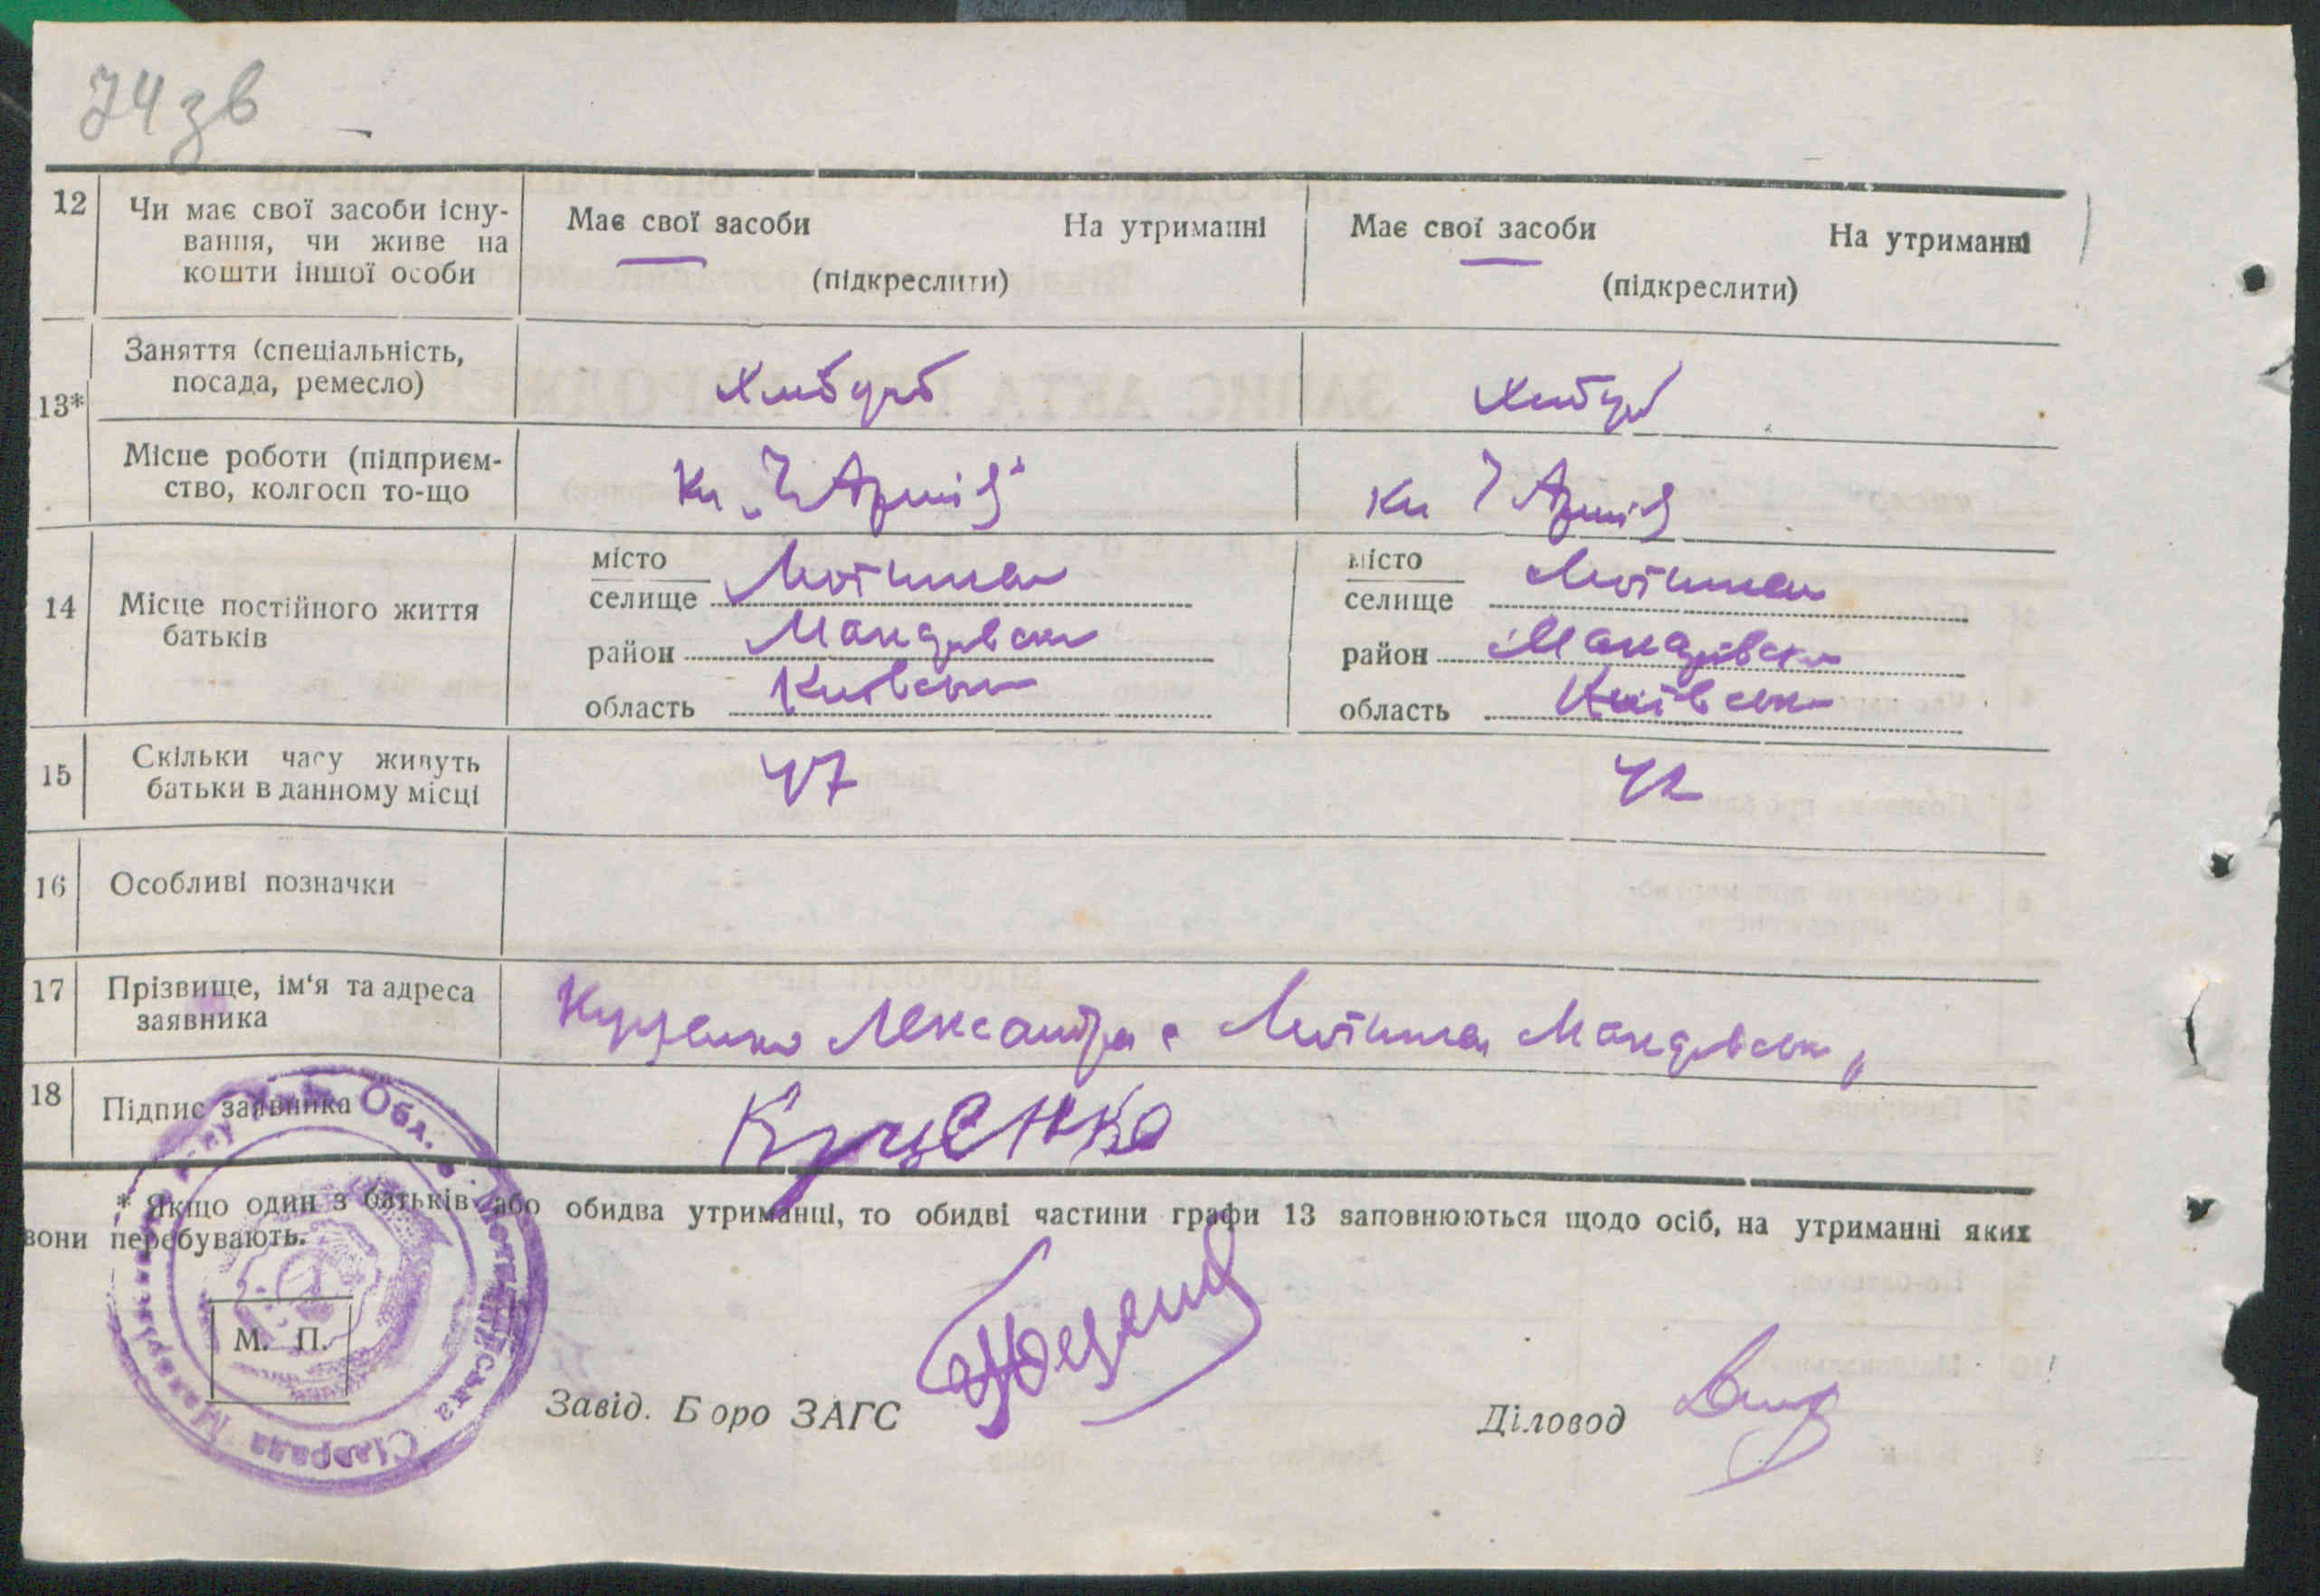 74зв
12 Чи має свої засоби існу-
вання, чи живе на
кошти іншої особи
Має свої засоби На утриманні
(підкреслити)
Має свої засоби На утриманні
(підкреслити)
13*
Заняття (спеціальність,
посада, ремесло)
Хлібороб
Хлібороб
Місце роботи (підприєм-
ство, колгосп то-що
Кл Армії"
Кл Армії
14 Місце постійного життя
батьків
місто
селище Мотижин
район Макарівськ
область Київськ
місто
селище Мотижин
район Макарівськ
область Київськ
15 Скільки часу живуть
батьки в данному місці
47
42
16 Особливі позначки
17 Прізвище, ім'я та адреса
заявника
Куценко Лександра с Мотижин Макарівськ
18 Підпис заявника
Куценко
* Якщо один з батьків або обидва утриманці, то обидві частини графи 13 заповнюються щодо осіб, на утриманні яких
вони перебувають.
М. П.
Завід. Б оро ЗАГС
Діловод
Обл. Мотижинська Сільрада Макарівськ